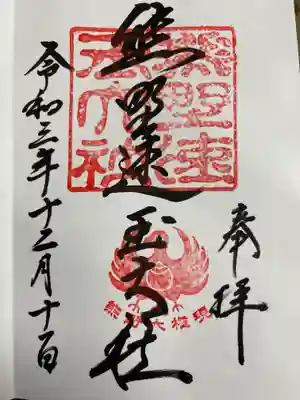 奉拝
熊野速玉大社
令和三年十二月十日
熊野速玉大社
熊野大権現